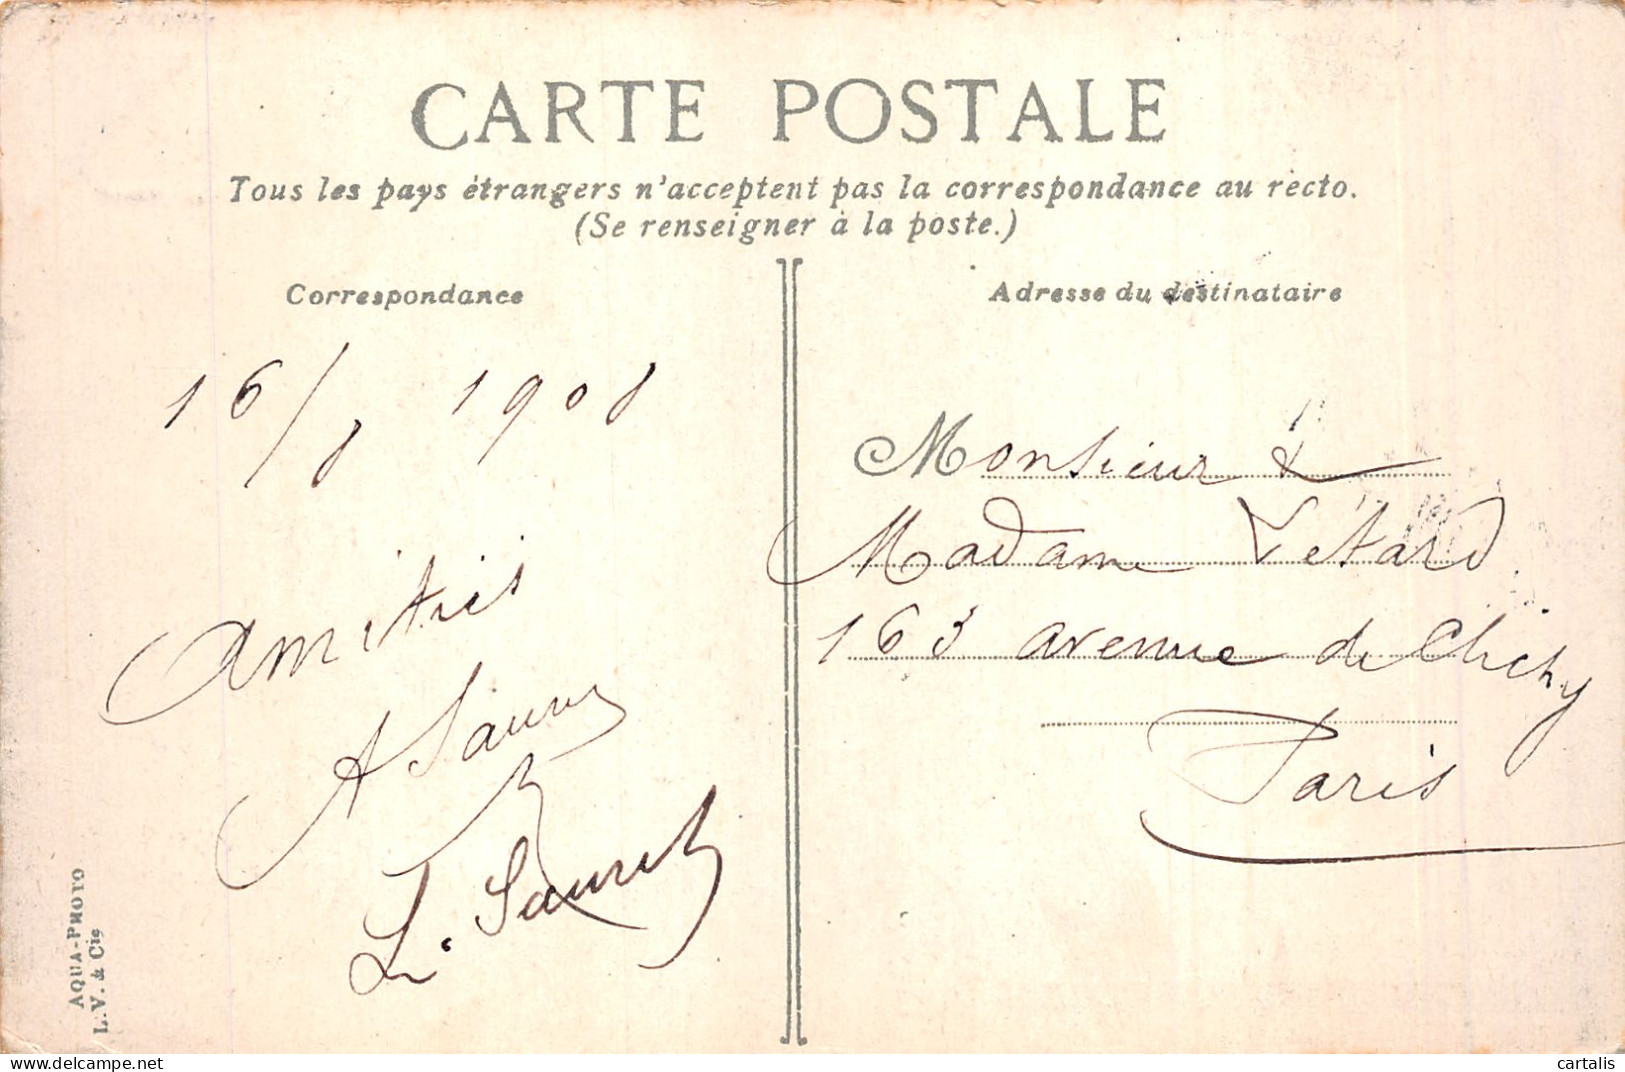 CARTE POSTALE
Tous les pays étrangers n'acceptent pas la correspondance au recto.
(Se renseigner à la poste.)
Correspondance
Adresse du destinataire
16/8 1908
Amitiés
A
L.
Monsieur &
Madame Vétard
163 avenue de Clichy
Paris
AQUA-PHOTO
L.V. & Cie
delcampe.net
cartalis